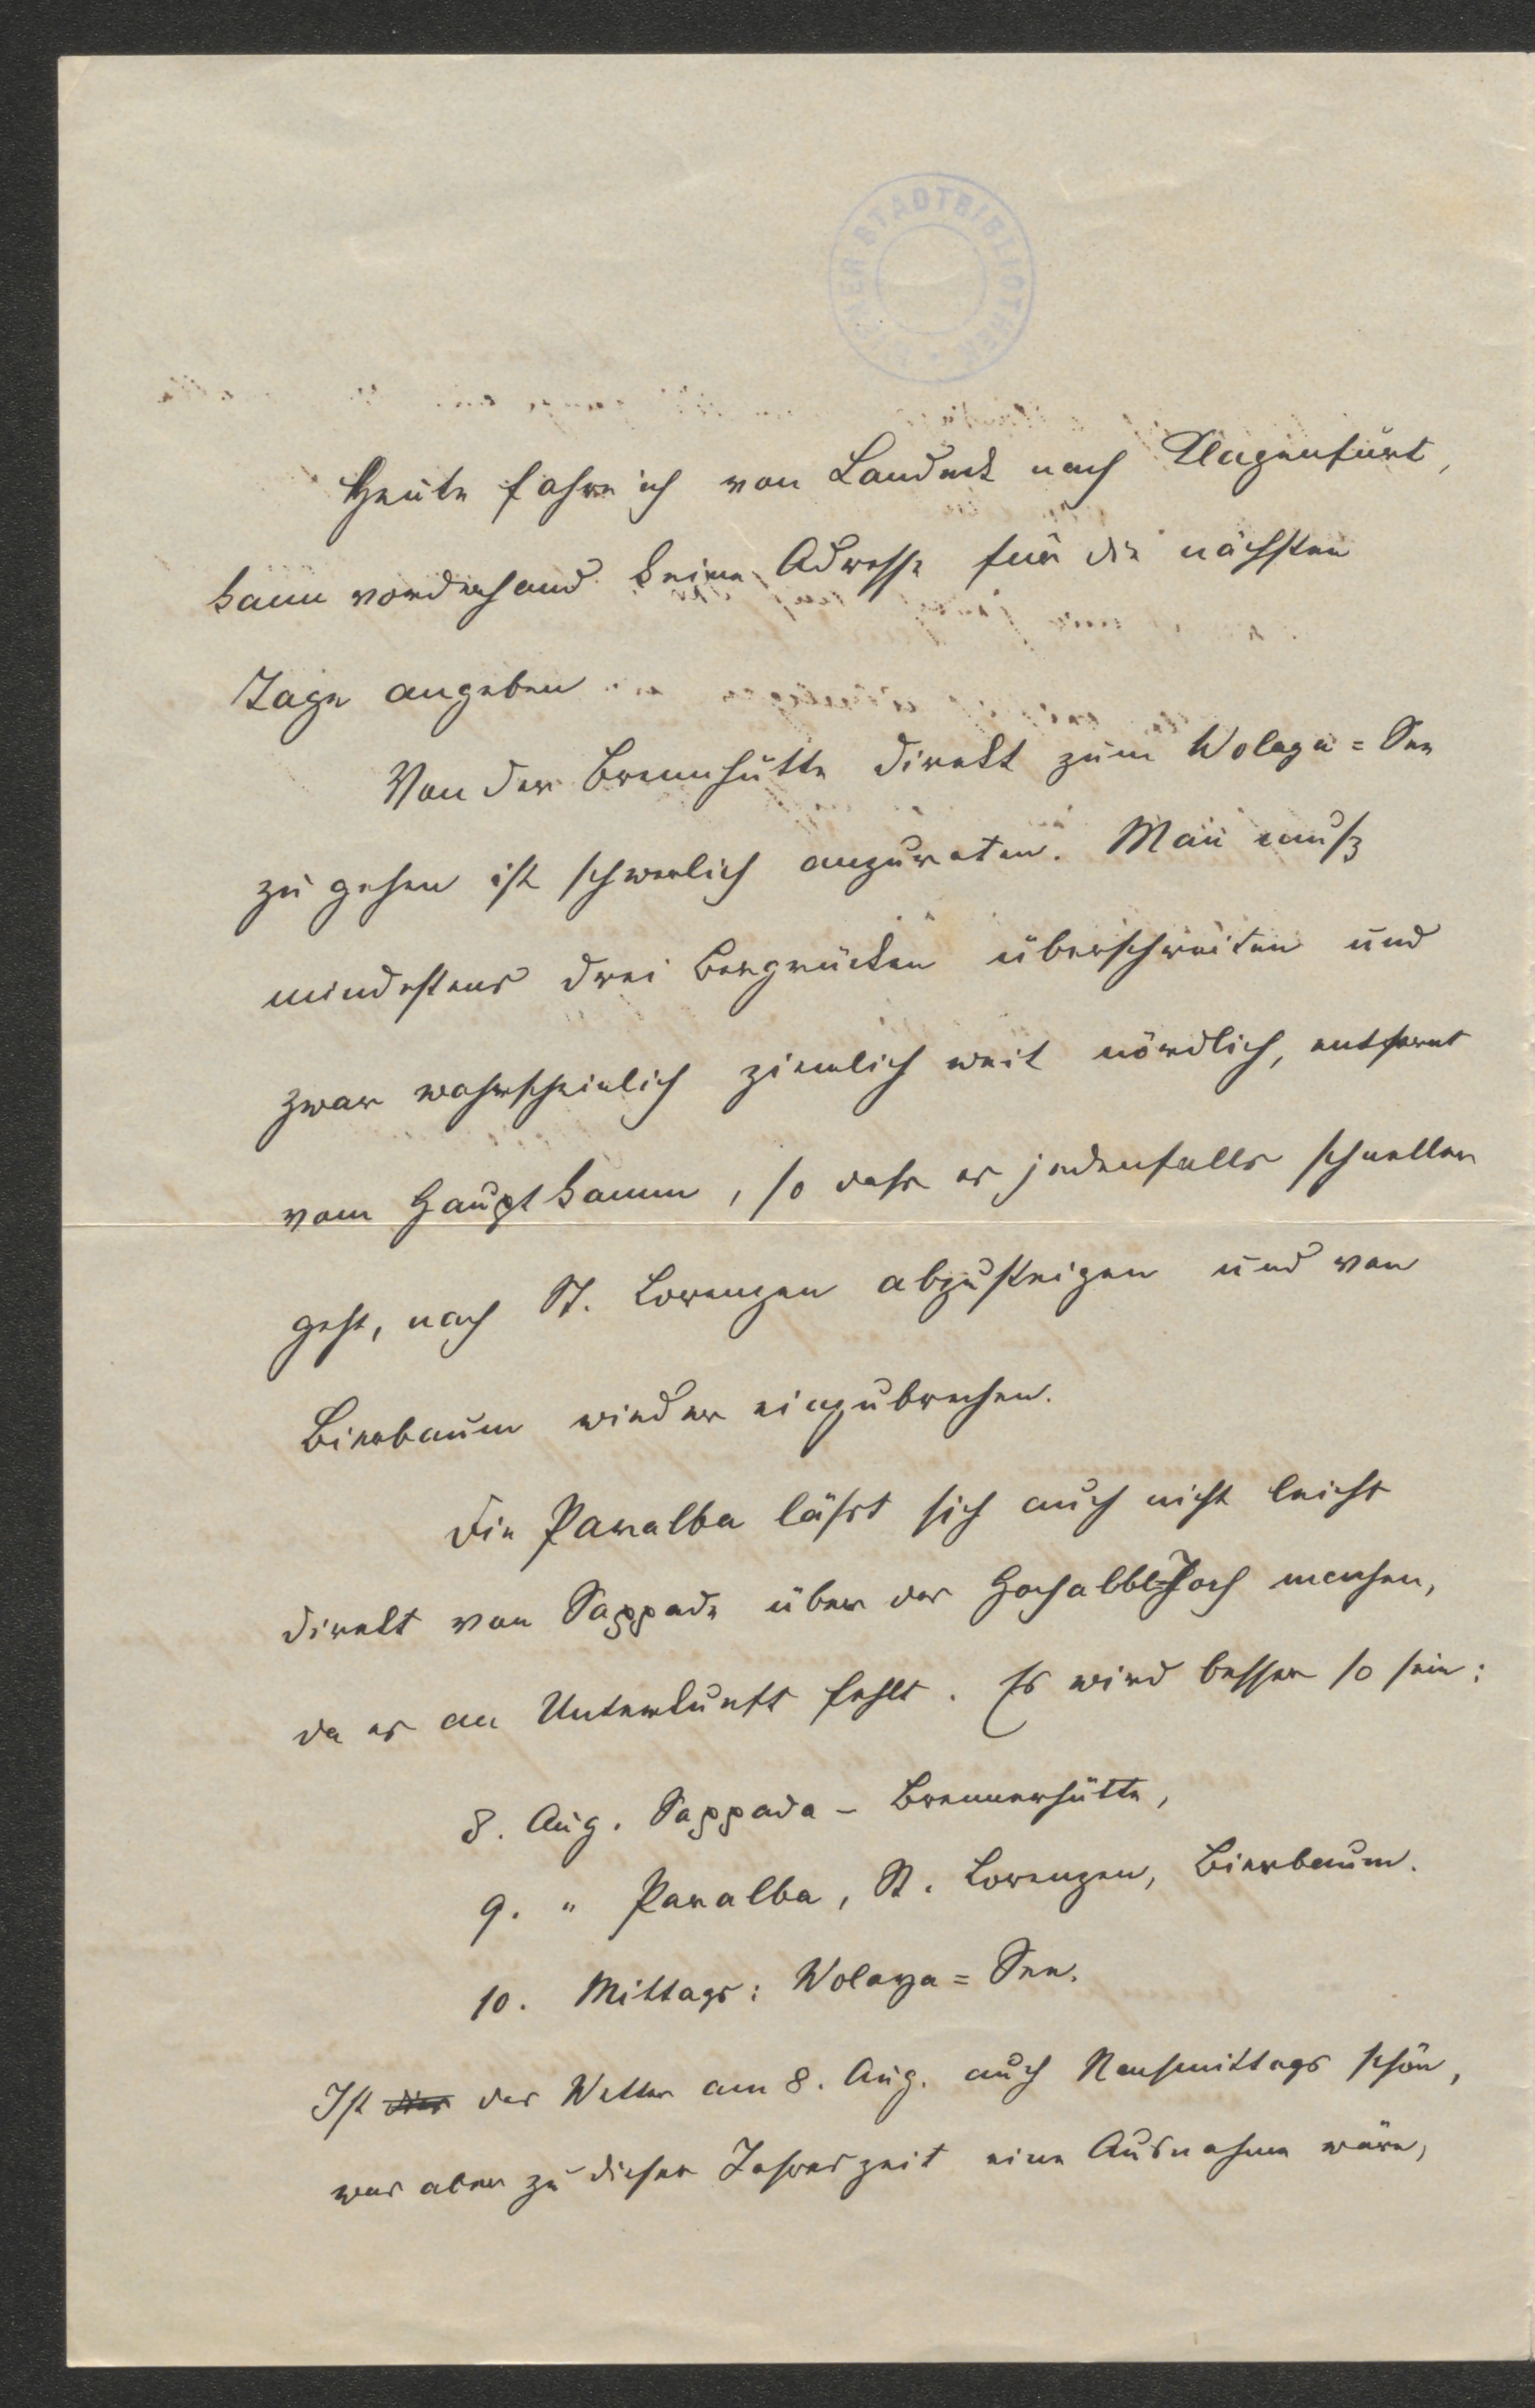 WIENER STADTBIBLIOTHEK
Heute fahre ich von Landeck nach Klagenfurt,
kann vorderhand keine Adresse für die nächsten
Tage angeben
Von der Brennhütte direkt zum Wolaya=See
zu gehen ist schwerlich anzuraten. Man muß
mindestens drei Bergrücken überschreiten und
zwar wahrscheinlich ziemlich weit nördlich, entfernt
vom Hauptkamm, so dass es jedenfalls schneller
geht, nach St. Lorenzen abzusteigen und von
Bierbaum wieder einzubrechen.
Die Paralba lässt sich auch nicht leicht
direkt von Sappada über das Hochalbl=Joch machen,
da es an Unterkunft fehlt. Es wird besser so sein:
8. Aug. Sappada – Brennerhütte,
9. " Paralba, St. Lorenzen, Bierbaum.
10. Mittags: Wolaya=See.
Ist das Wetter am 8. Aug. auch Nachmittags schön,
was aber zu dieser Jahreszeit eine Ausnahme wäre,